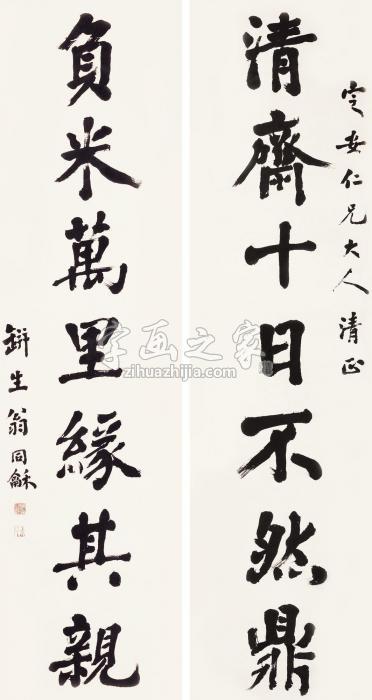 定安仁兄大人清正
清齋十日不然鼎
負米萬里緣其親
缾生翁同龢
字画之家
zihuazhijia.com